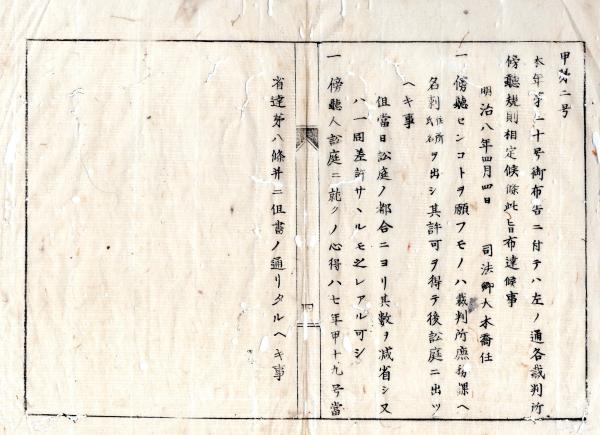 甲第二号
本年第三十号御布告ニ付テハ左ノ通各裁判所
傍聴規則相定候條此旨布達候事
明治八年四月四日　司法卿大木喬任
一 傍聴センコトヲ願フモノハ裁判所庶務課ヘ
名刺住所氏名ヲ出シ其許可ヲ得テ後訟庭ニ出ツ
ヘキ事
但當日訟庭ノ都合ニヨリ其数ヲ減省シ又
ハ一同差許サヽルモ之レアル可シ
一 傍聴人訟庭ニ就クノ心得ハ七年甲十九号當
省達第八條并ニ但書ノ通リタルヘキ事
四